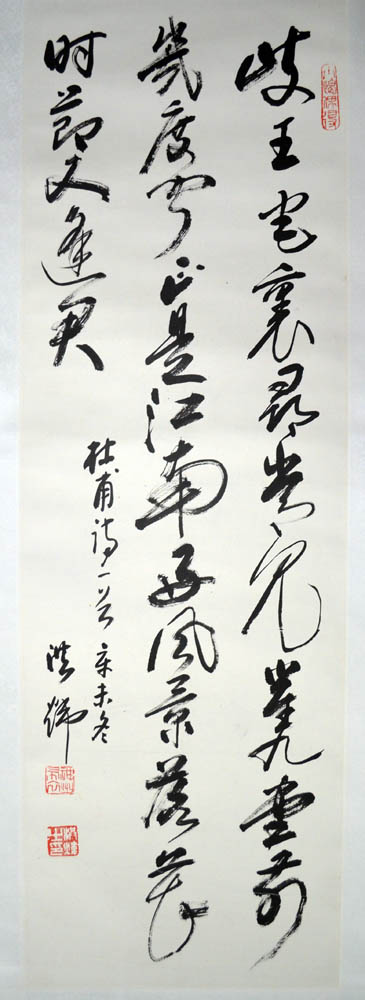 歧王宅裏尋常見崔九堂前
幾度聞正是江南好風景落花
时節又逢君
杜甫诗一首 辛未冬
洪煒